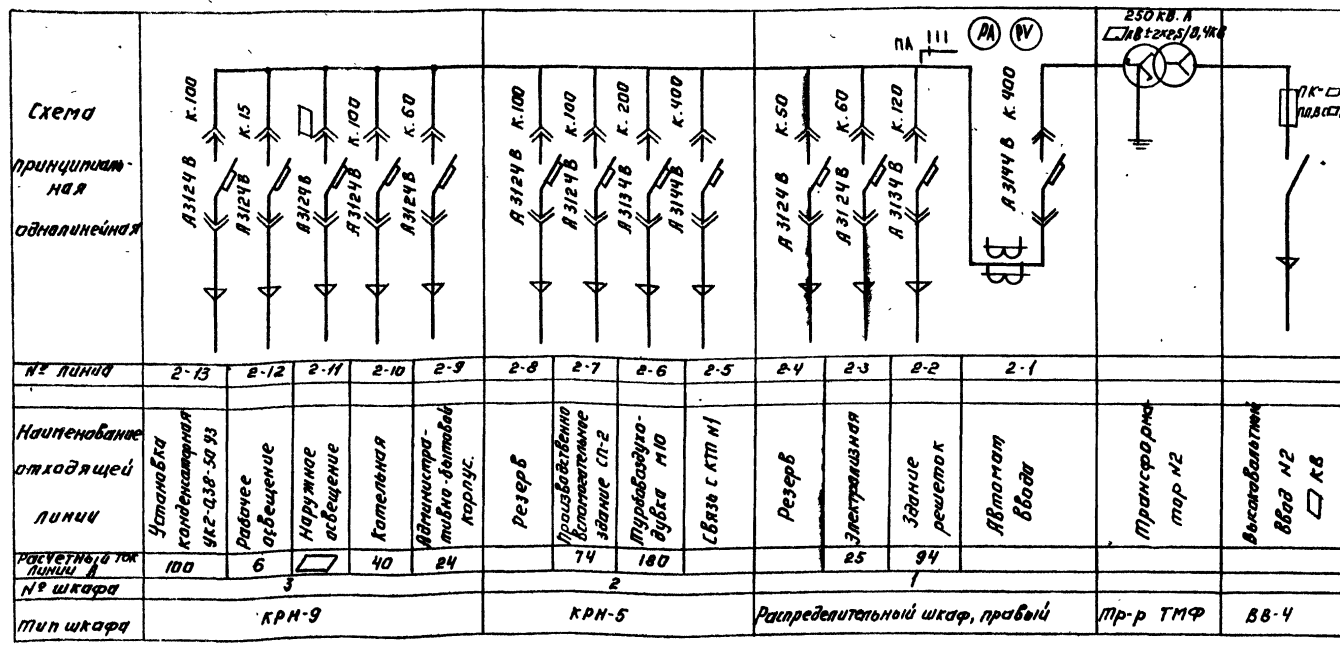 250 кв.А
кв±2х2,5/0,4кв
ПА
PA
PV
Схема
принципиаль-
ная
однолинейная
А3124В К.100
А3124В К.15
А3124В
А3124В К.100
А3124В К.60
А3124В К.100
А3124В К.100
А3134В К.200
А3144В К.400
А3124В К.50
А3124В К.60
А3134В К.120
А3144В К.400
ПК-
№ линии 2-13 2-12 2-11 2-10 2-9 2-8 2-7 2-6 2-5 2-4 2-3 2-2 2-1
Наименование
отходящей
линии
Установка
конденсаторная
УК2-0,38-50 УЗ
Рабочее
освещение
Наружное
освещение
Котельная
Администра-
тивно-бытовой
корпус.
Резерв
Производственно
вспомогательное
здание СП-2
Турбовоздухо-
дувка М10
Связь с КТП №1
Резерв
Электролизная
Здание
решеток
Автомат
ввода
Трансформа
тор №2
Высоковольтный
ввод №2
КВ
Расчетный ток
линии А 100 6 40 24 74 180 25 94
№ шкафа 3 2 1
Тип шкафа КРН-9 КРН-5 Распределительный шкаф, правый Тр-р ТМФ ВВ-4